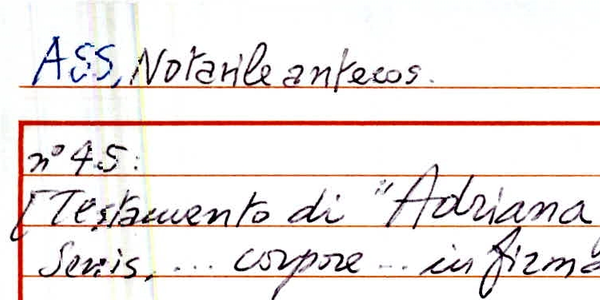 ASS, Notarile antecos.
n° 45:
[Testamento di "Adriana
Senis, ... corpore ... infirma